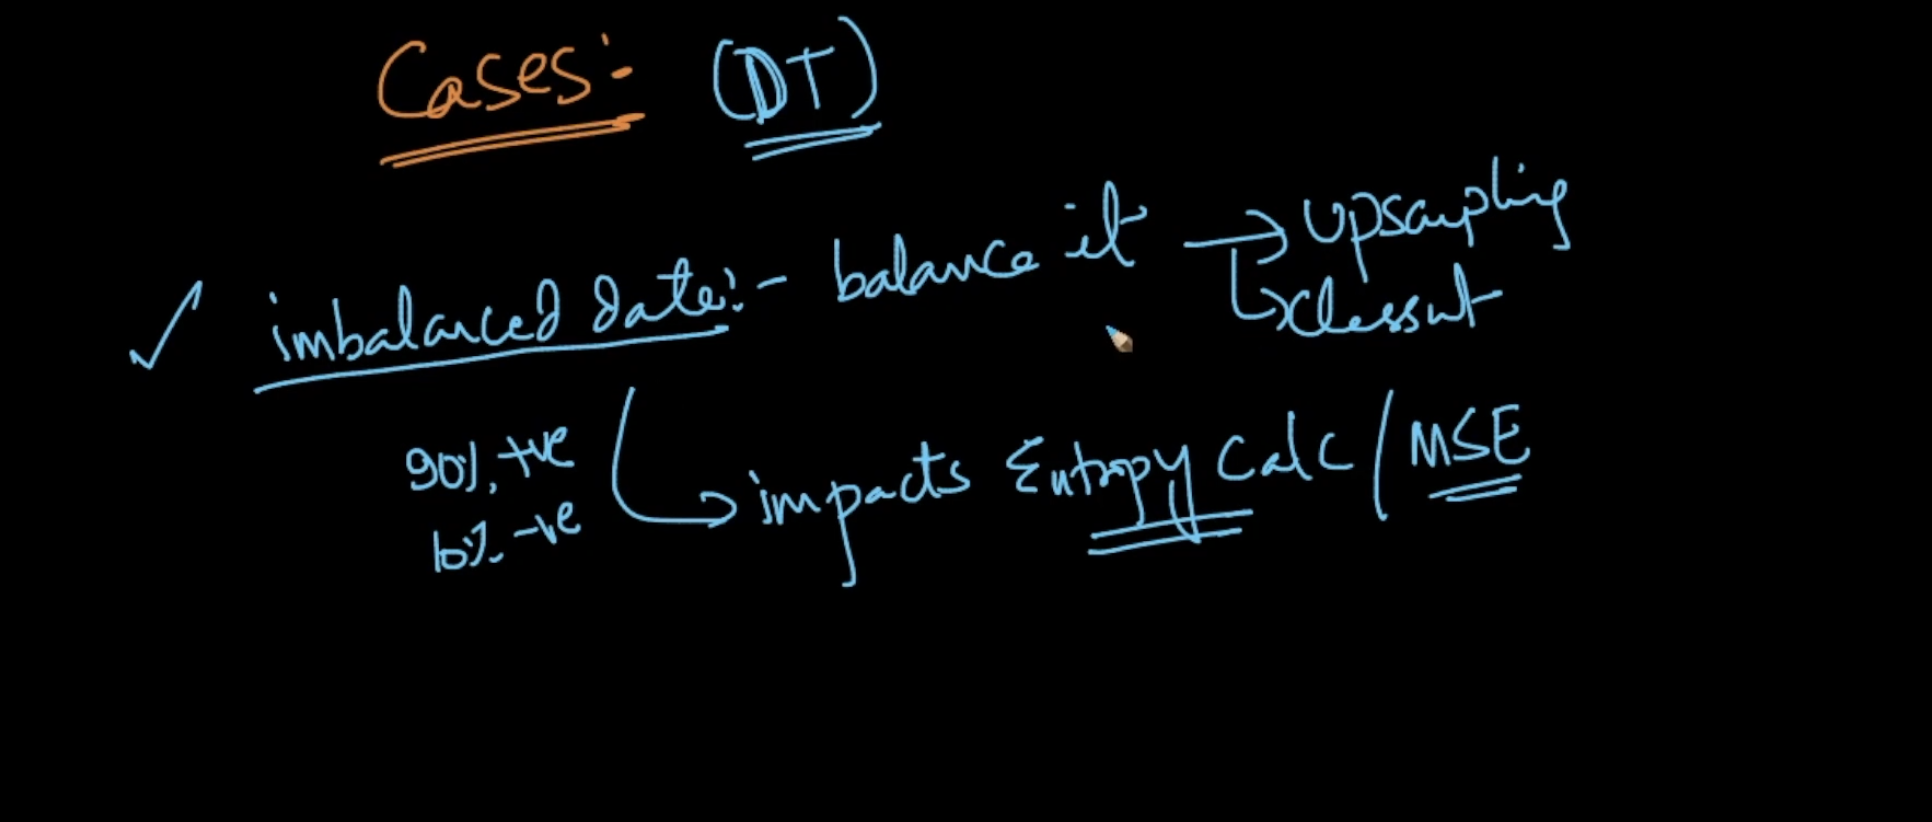 Cases:- (DT)
imbalanced data:- balance it → Upsampling
↳ classwt
90%, +ve
↳ impacts Entropy Calc / MSE
10% -ve